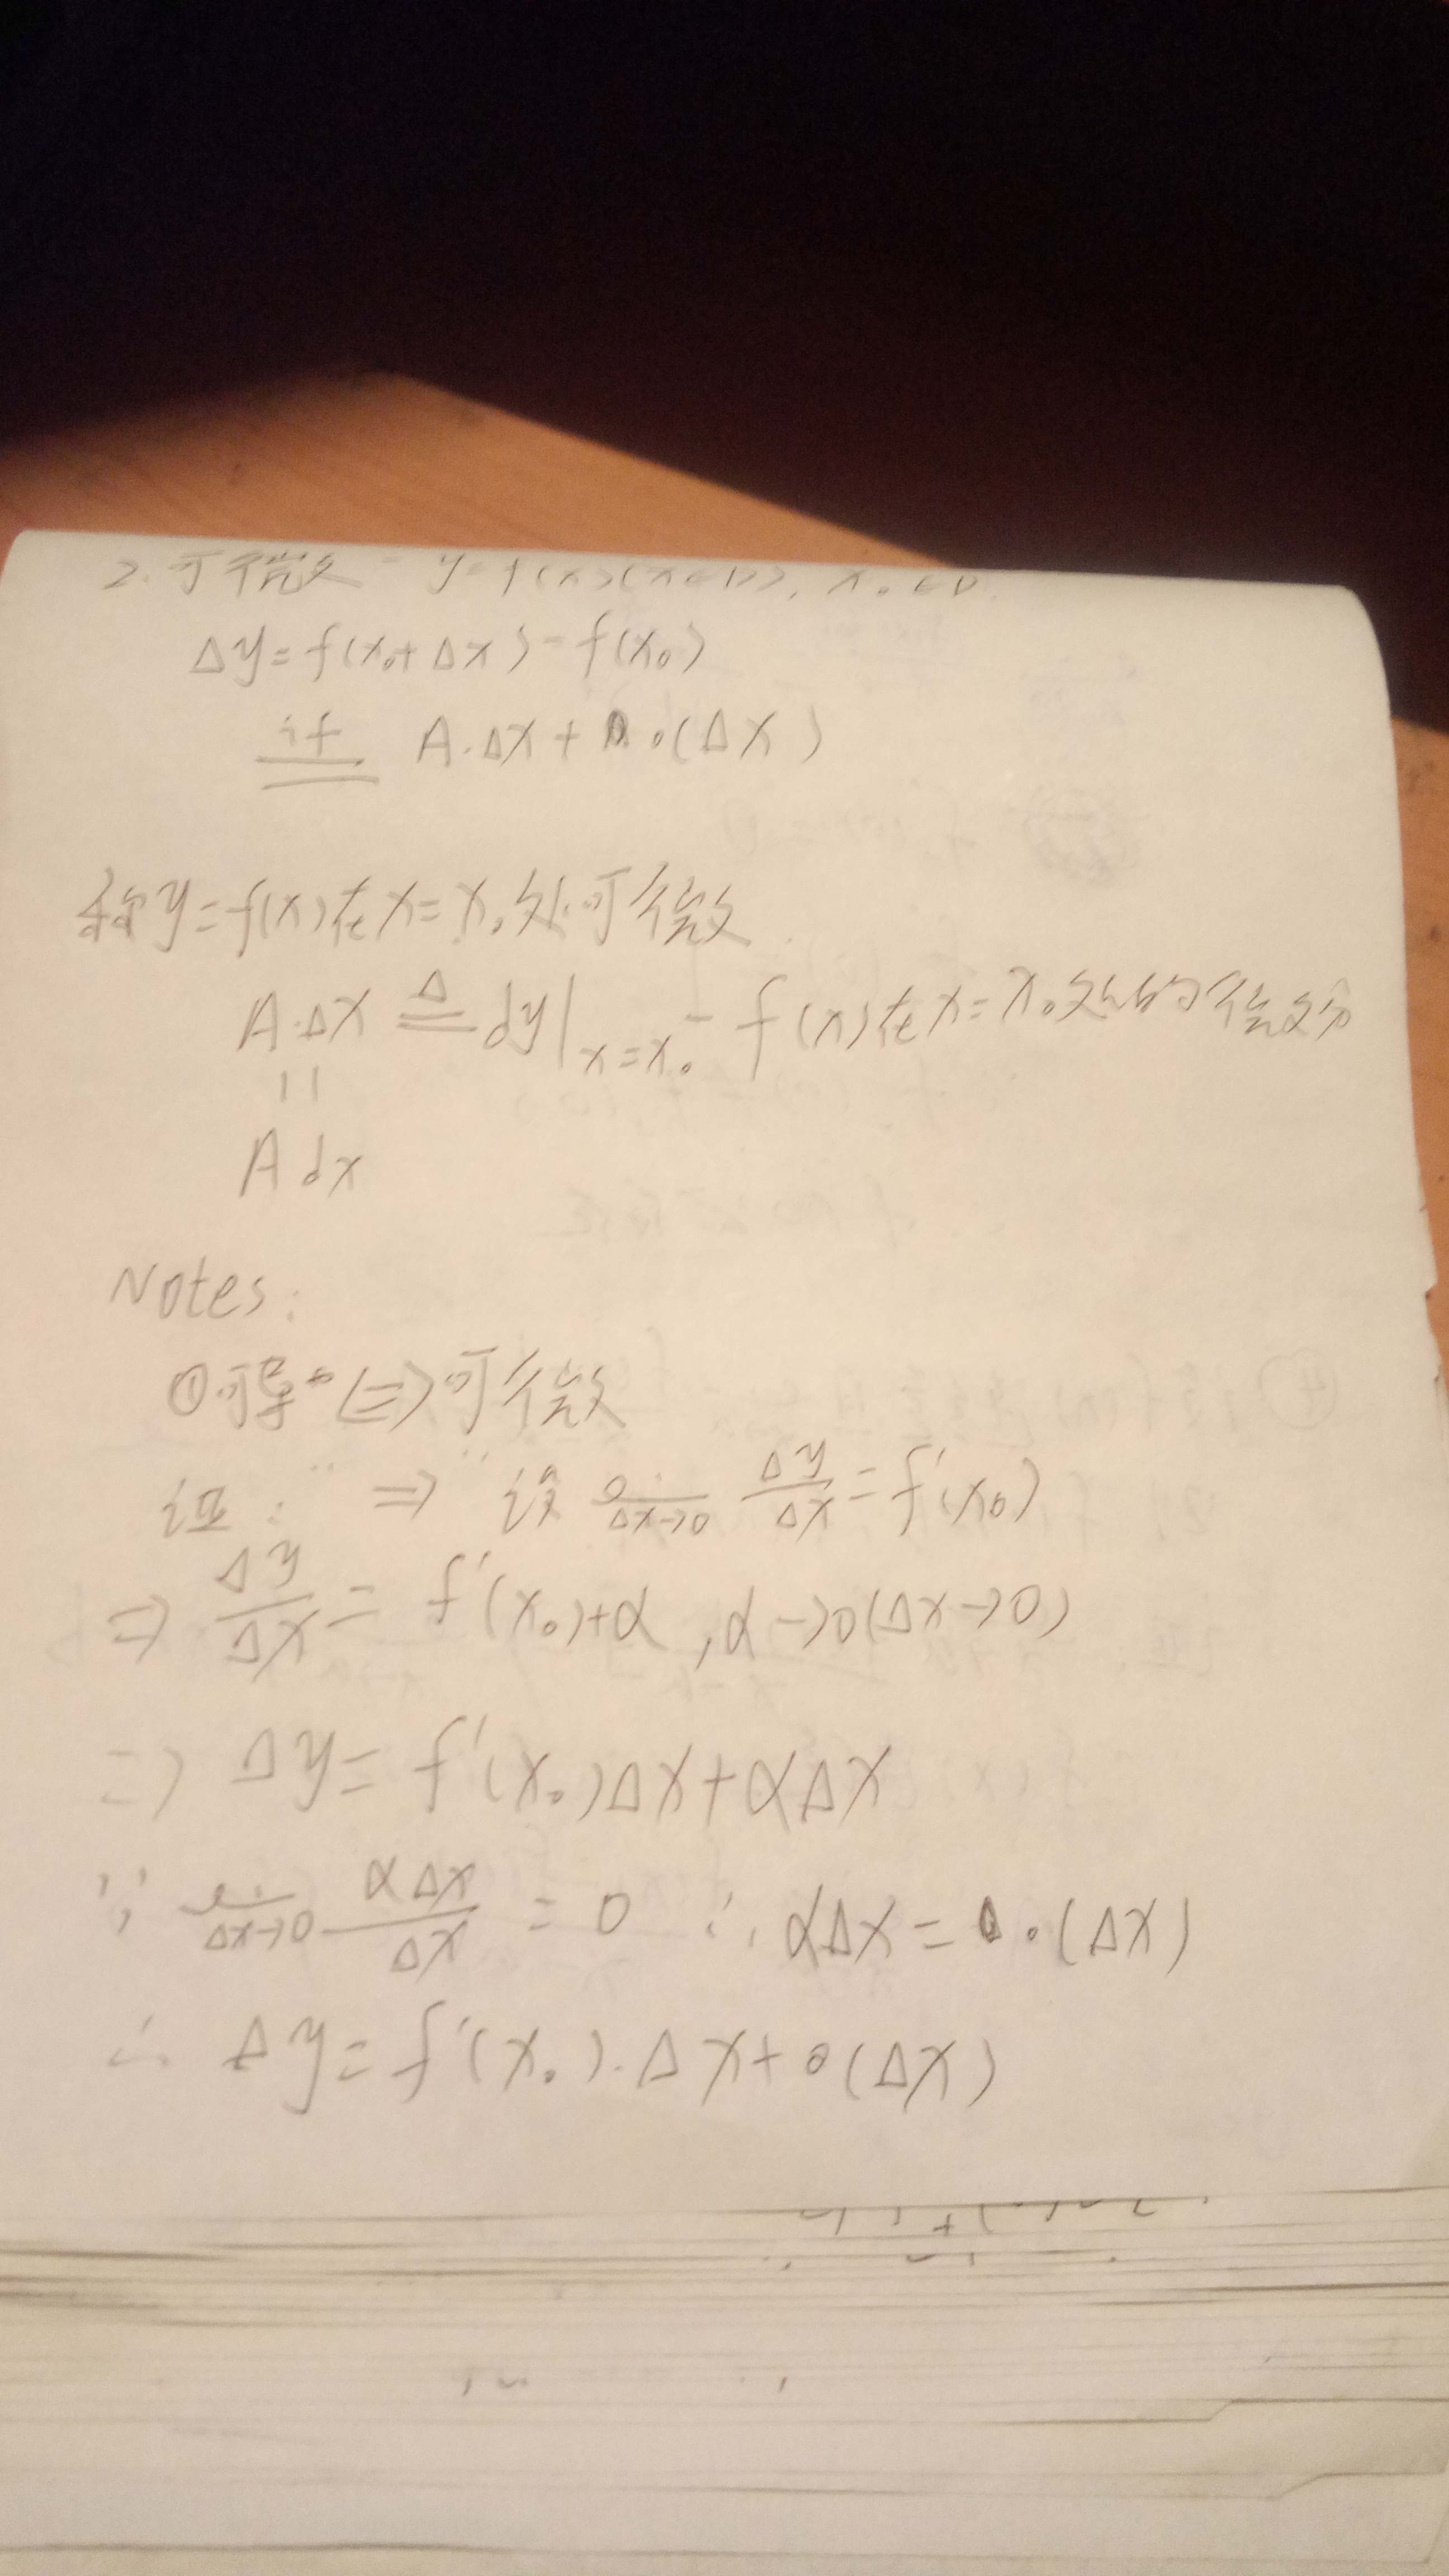 2. 可微 - y=f(x)(x∈D), x₀∈D.
Δy=f(x₀+Δx)-f(x₀)
if A·Δx+o(Δx)
称y=f(x)在x=x₀处可微
A·Δx ≜ dy|x=x₀ - f(x)在x=x₀处的微分
||
Adx
Notes:
①可导 <=> 可微
证: "⇒" 设 lim Δx→0 Δy/Δx=f'(x₀)
⇒ Δy/Δx=f'(x₀)+α, α→0(Δx→0)
⇒ Δy=f'(x₀)Δx+αΔx
∵ lim Δx→0 αΔx/Δx=0 ∴ αΔx=o(Δx)
∴ Δy=f'(x₀)·Δx+o(Δx)